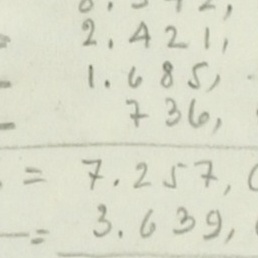 = 2.421,
= 1.685,
- 736,
= 7.257,
= 3.639,